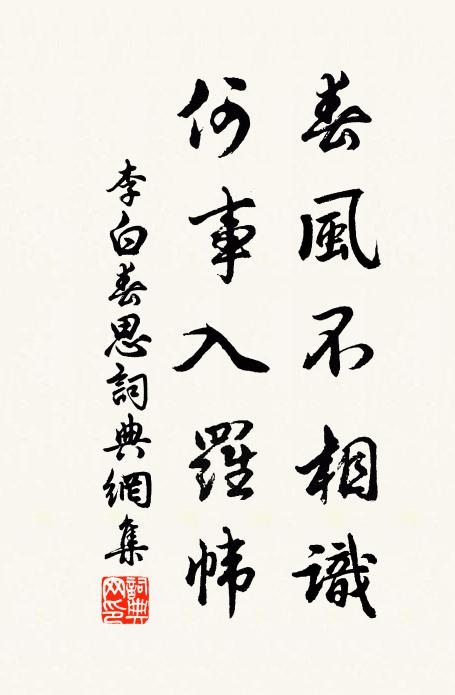 春風不相識
何事入羅幃
李白春思詞典網集
詞典網印